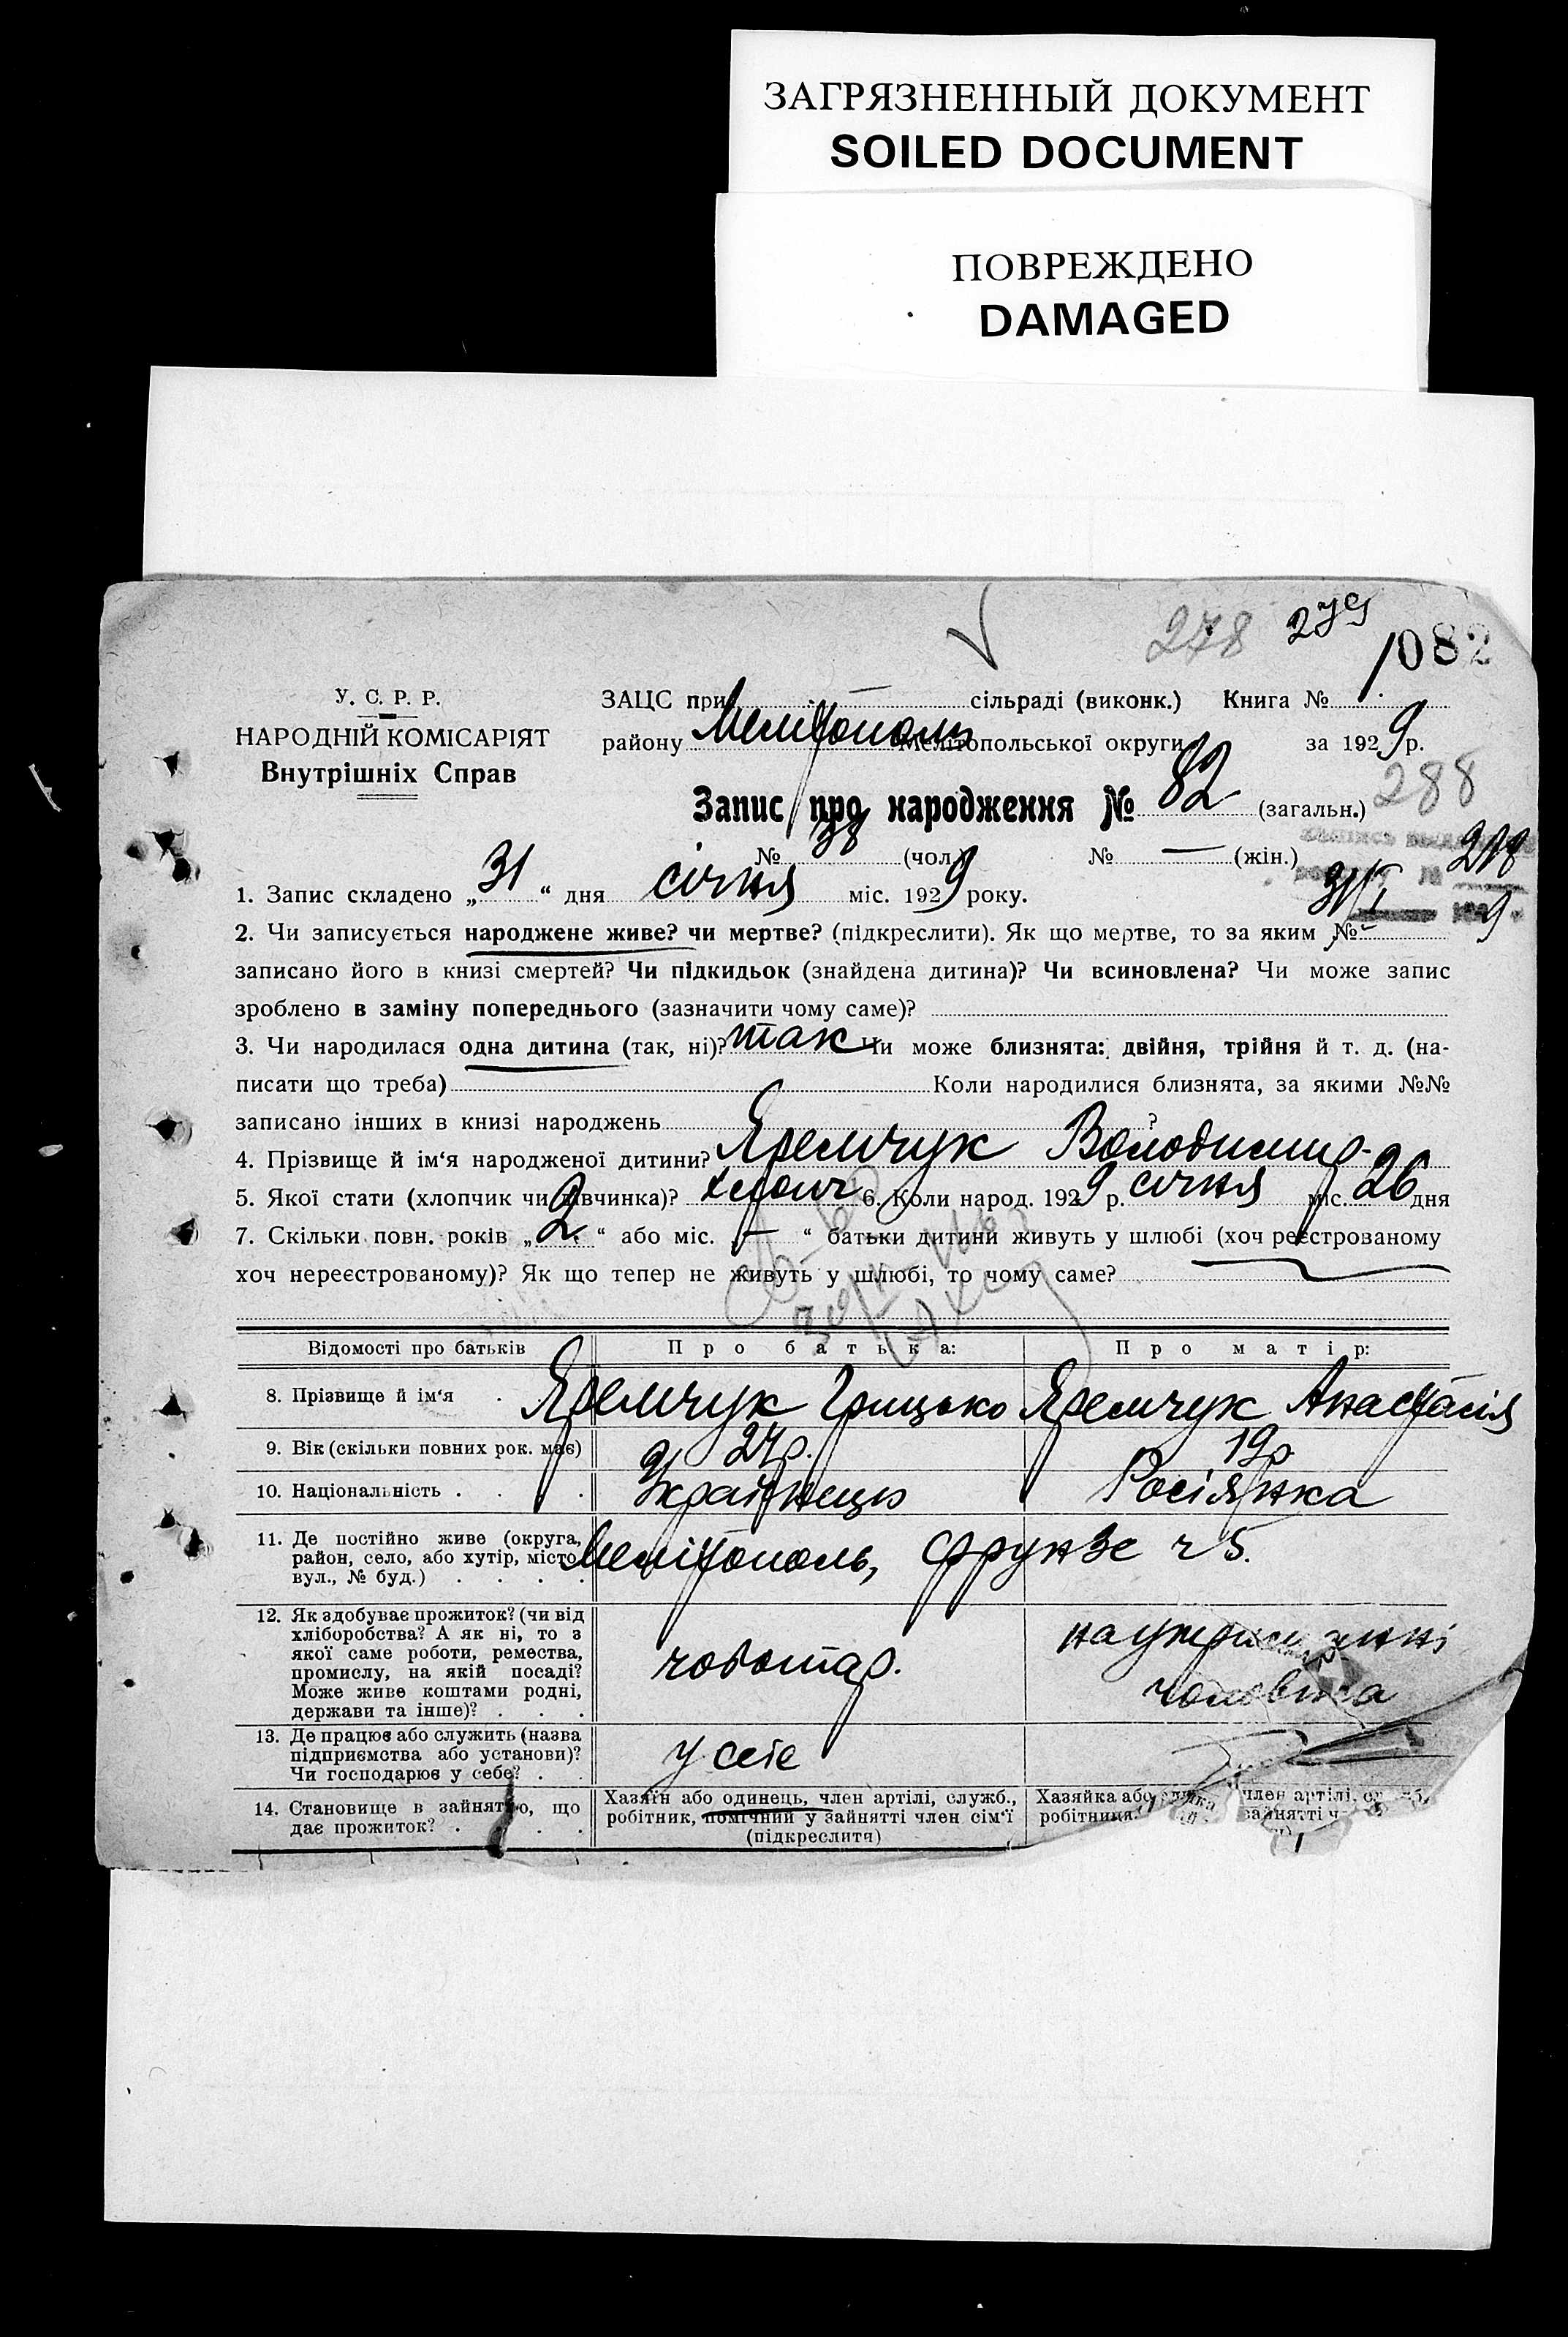 ЗАГРЯЗНЕННЫЙ ДОКУМЕНТ
SOILED DOCUMENT
ПОВРЕЖДЕНО
DAMAGED
278 279
1082
У. С. Р. Р.
НАРОДНІЙ КОМІСАРІЯТ
Внутрішніх Справ
ЗАЦС при — сільраді (виконк.) Книга №
району Мелітополь Мелітопольської округи за 1929 р.
Запис про народження № 82 (загальн.) 288
№ 38 (чол.) № — (жін.)
218
31/I 9
1. Запис складено „31“ дня січня міс. 1929 року.
2. Чи записується народжене живе? чи мертве? (підкреслити). Як що мертве, то за яким №
записано його в книзі смертей? Чи підкидьок (знайдена дитина)? Чи всиновлена? Чи може запис
зроблено в заміну попереднього (зазначити чому саме)?
3. Чи народилася одна дитина (так, ні)? так Чи може близнята: двійня, трійня й т. д. (на-
писати що треба) Коли народилися близнята, за якими №№
записано інших в книзі народжень ?
4. Прізвище й ім‘я народженої дитини? Яремчук Володимир.
5. Якої стати (хлопчик чи дівчинка)? хлопч 6. Коли народ. 1929 р. січня міс. 26 дня
7. Скільки повн. років „2“ або міс. „—“ батьки дитини живуть у шлюбі (хоч реєстрованому
хоч нереєстрованому)? Як що тепер не живуть у шлюбі, то чому саме?
Відомості про батьків Про батька: Про матір:
8. Прізвище й ім‘я . Яремчук Грицько Яремчук Анастасія
9. Вік (скільки повних рок. має) 27 р. 19 р.
10. Національність . . . . Українець Росіянка
11. Де постійно живе (округа,
район, село, або хутір, місто
вул., № буд.) . . . .
Мелітополь, Фрунзе ч 5.
12. Як здобуває прожиток? (чи від
хліборобства? А як ні, то з
якої саме роботи, ремества,
промислу, на якій посаді?
Може живе коштами родні,
держави та інше)? . . .
чоботар.
на утриманні
чоловіка
13. Де працює або служить (назва
підприємства або установи)?
Чи господарює у себе? . .
у себе
14. Становище в зайняттю, що
дає прожиток? . . . .
Хазяїн або одинець, член артілі, служб.,
робітник, помічний у зайнятті член сім‘ї
(підкреслити)
Хазяйка або член артілі,
робітниця зайнятті ч